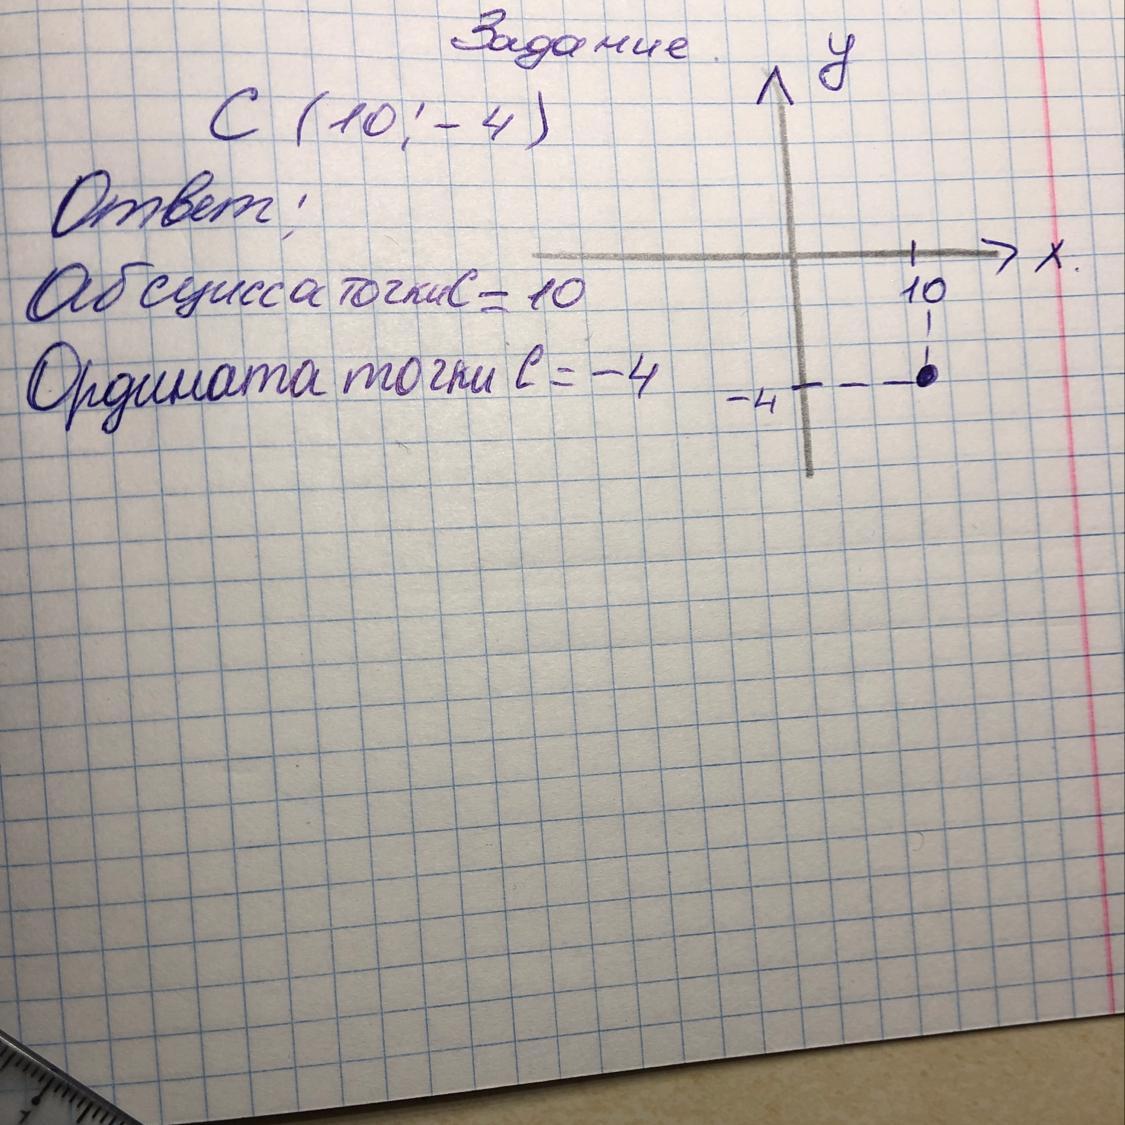 Задание.
C (10; -4)
Ответ:
Абсцисса точки C = 10
Ордината точки C = -4
y
x.
10
-4
1